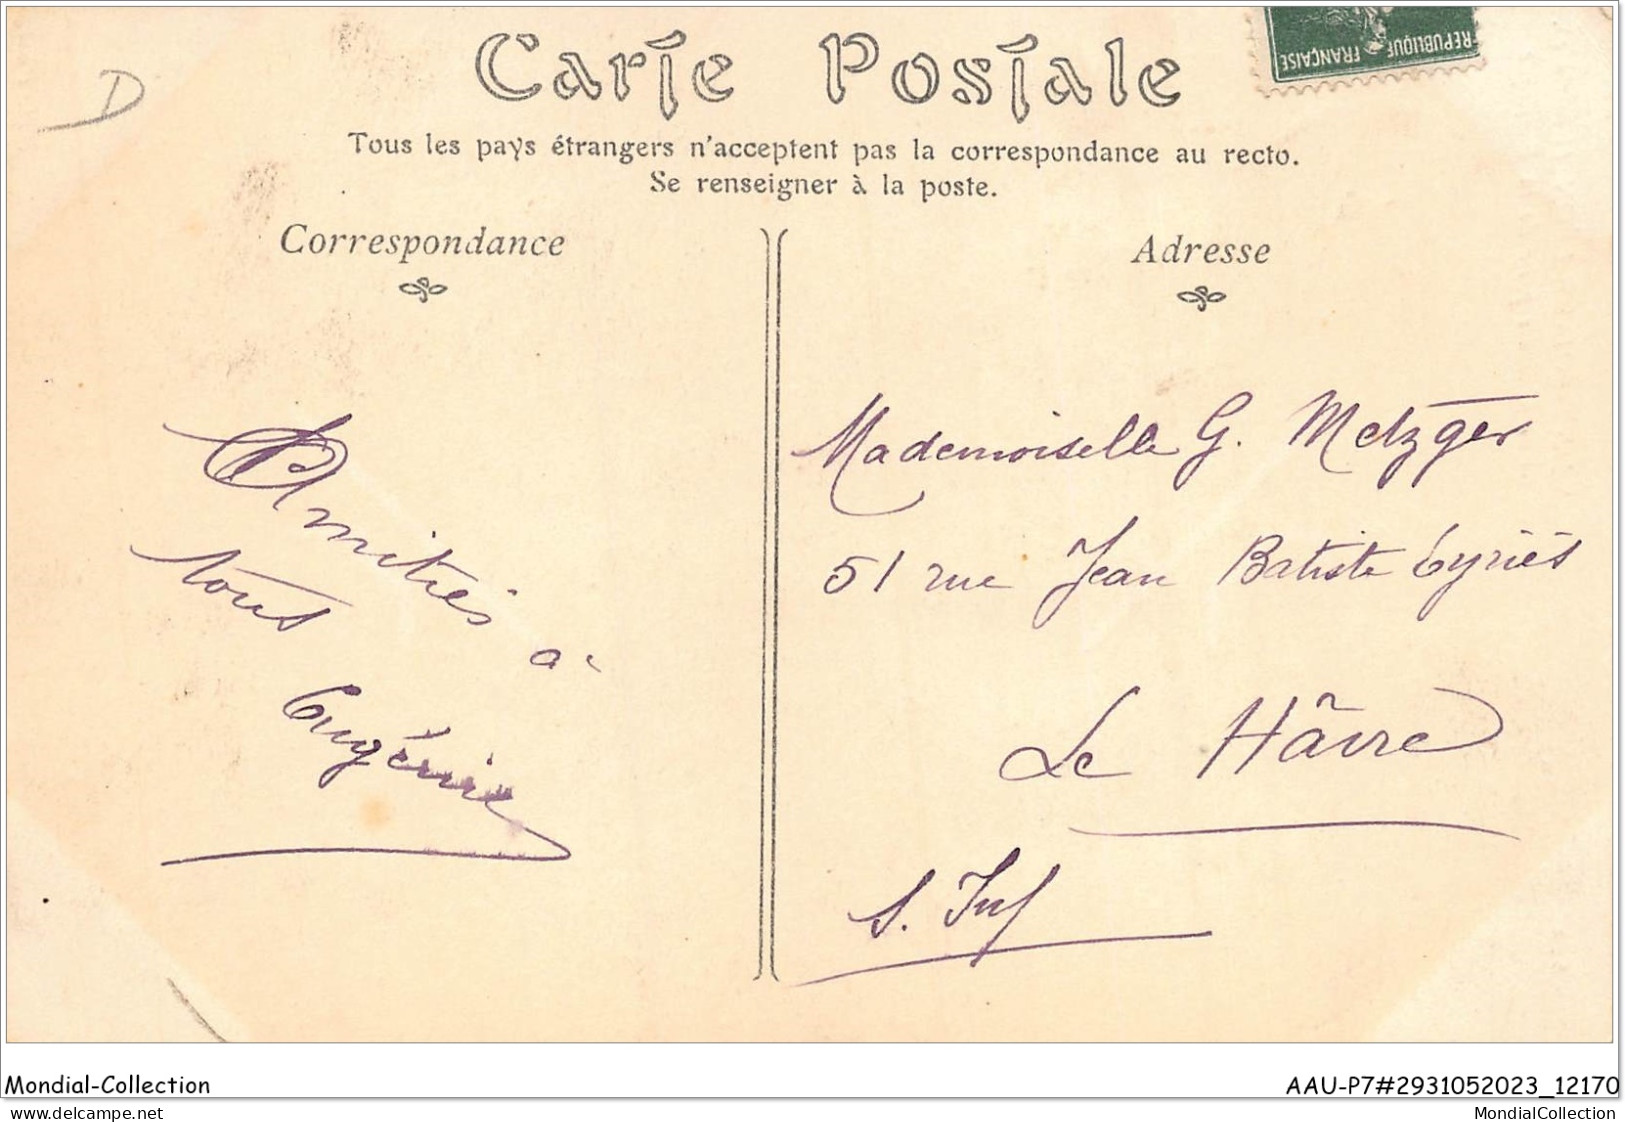 D
Carte Postale
REPUBLIQUE FRANÇAISE
Tous les pays étrangers n'acceptent pas la correspondance au recto.
Se renseigner à la poste.
Correspondance
Amitiés à
tous
Eugénie
Adresse
Mademoiselle G. Metzger
51 rue Jean Batiste Eyriès
Le Hâvre
S. Inf
Mondial-Collection
AAU-P7#2931052023_12170
www.delcampe.net
MondialCollection